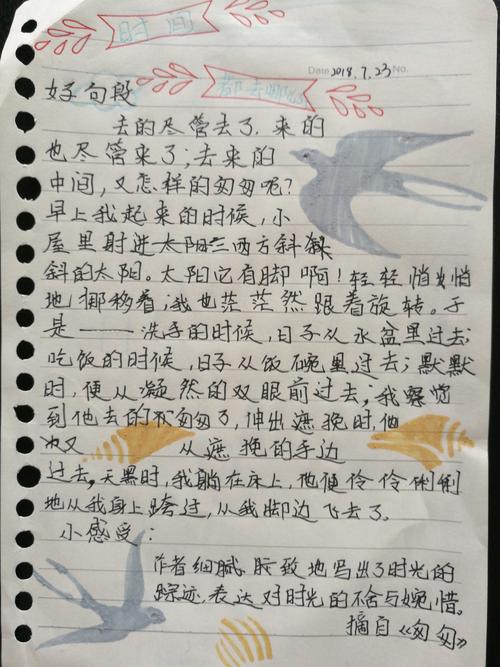 时间
都去哪
Date 2018.7.23 No.
好句段
去的尽管去了，来的
也尽管来了；去来的
中间，又怎样的匆匆呢？
早上我起来的时候，小
屋里射进太阳三两方斜
斜的太阳。太阳它有脚啊！轻轻悄悄
地挪移着；我也茫茫然跟着旋转。于
是——洗手的时候，日子从水盆里过去；
吃饭的时候，日子从饭碗里过去；默默
时，便从凝然的双眼前过去；我察觉
到他去的匆匆了，伸出遮挽时，他
又 从遮挽的手边
过去。天黑时，我躺在床上，他便伶伶俐俐
地从我身上跨过，从我脚边飞去了。
小感受：
作者细腻 致地写出了时光的
踪迹，表达对时光的不舍与婉惜。
摘自《匆匆》